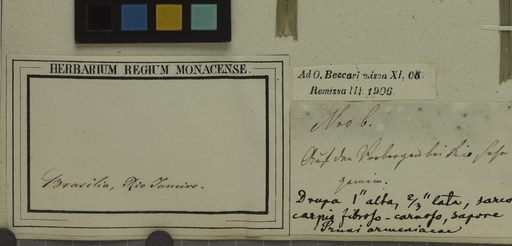 HERBARIUM REGIUM MONACENSE.
Brasilia, Rio Janeiro.
Ad O. Beccari missa XI, 08.
Remissa III 1908.
Nro 6.
Auf den Vorbergen bei Rio, sehr
gemein.
Drupa 1" alta, 2/3" lata, sarco
carpio fibroso-carnoso, sapore
Pruni armeniacae